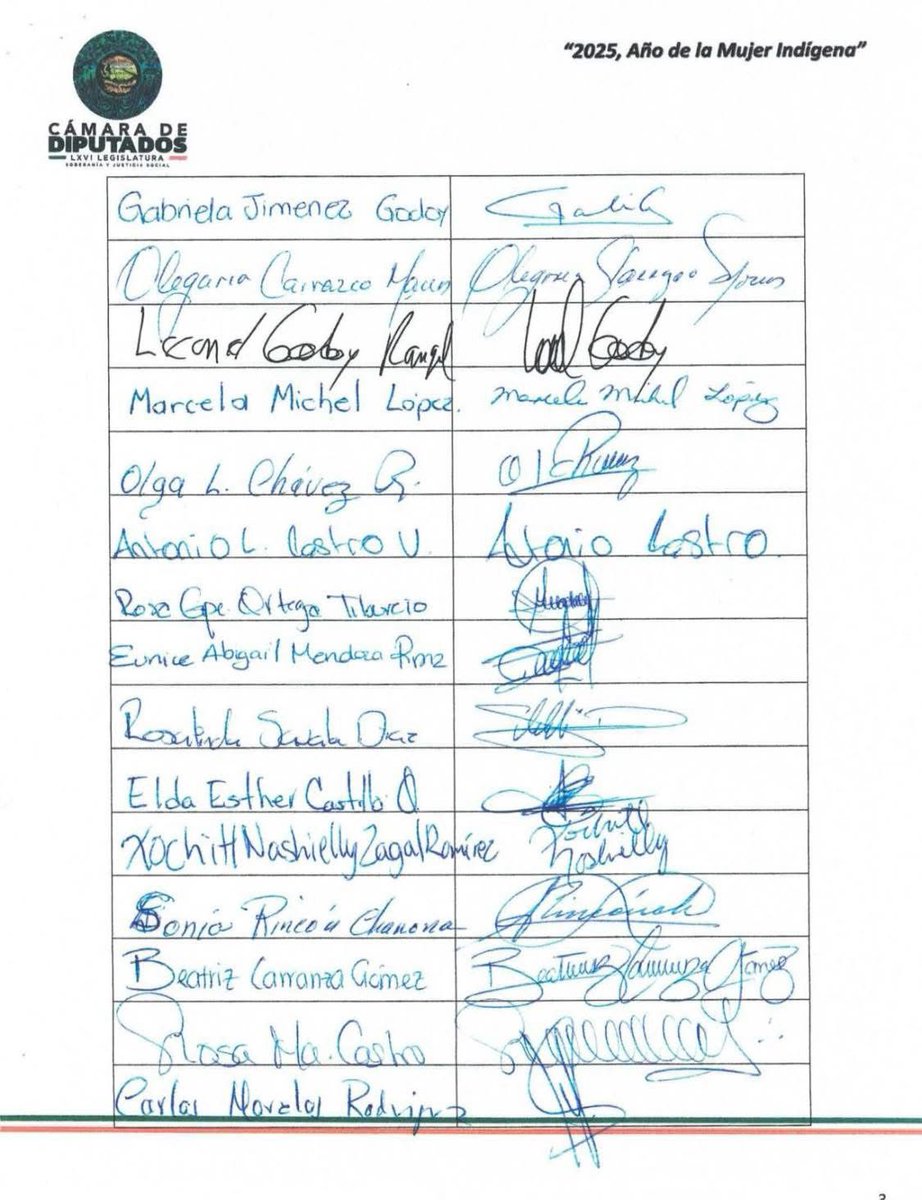 “2025, Año de la Mujer Indígena”
CÁMARA DE
DIPUTADOS
LXVI LEGISLATURA
SOBERANÍA Y JUSTICIA SOCIAL
Gabriela Jimenez Godoy
Olegaria Carrazco Macias
Leonel Godoy Rangel Godoy
Marcela Michel López. Marcela Michel López
Olga L. Chávez R.
Antonio L. Castro V. Antonio Castro.
Rosa Gpe. Ortega Tiburcio
Eunice Abigail Mendoza Rmz
Rosalinda Savala Diaz
Elda Esther Castillo Q.
Xochitl Nashielly Zagal Ramírez Xochitl Nashielly
Sonia Rincón Chanona
Beatriz Carranza Gómez Beatriz Carranza Gómez
Rosa Ma. Castro
Carlos Morelos Rodriguez
3